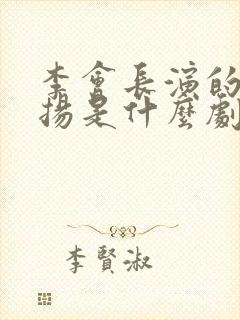 李會長演的
揚是什麼劇
李賢淑